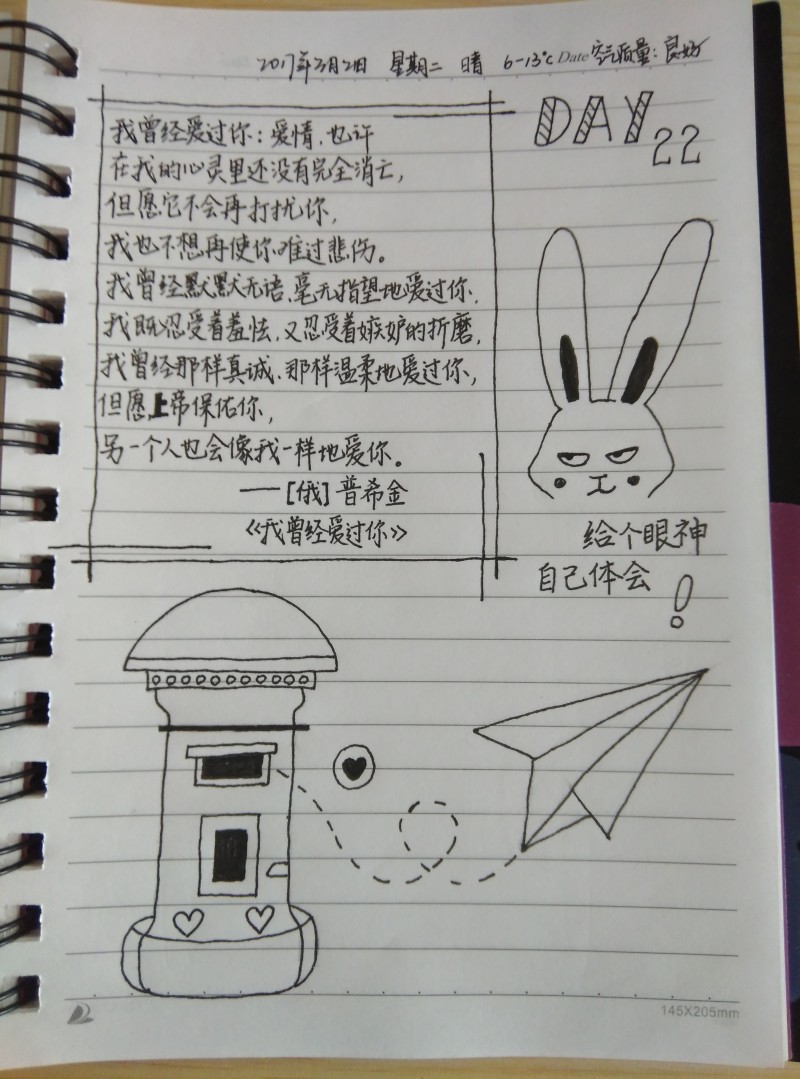 2017年3月21日 星期二 晴 6-13℃ Date 空气质量：良好
DAY 22
我曾经爱过你：爱情，也许
在我的心灵里还没有完全消亡，
但愿它不会再打扰你，
我也不想再使你难过悲伤。
我曾经默默无语、毫无指望地爱过你，
我既忍受着羞怯，又忍受着嫉妒的折磨，
我曾经那样真诚、那样温柔地爱过你，
但愿上帝保佑你，
另一个人也会像我一样地爱你。
——[俄]普希金
《我曾经爱过你》
给个眼神
自己体会！
145X205mm